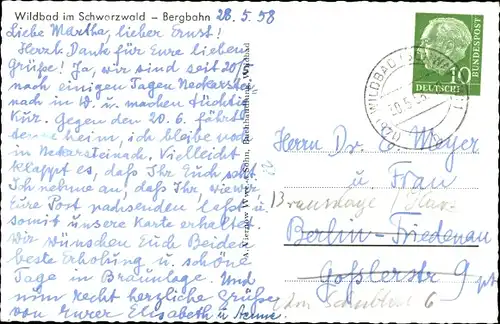 Wildbad im Schwarzwald – Bergbahn
28.5.58
Liebe Martha, lieber Ernst!
Herzl. Dank für Eure lieben
Grüße! Ja, wir sind seit 20/
nach einigen Tagen Neckarstei-
nach in W. u. machen tüchtig
Kur. Gegen den 20.6. fährt
heim, ich bleibe noch
in Neckarsteinach. Vielleicht
klappt es, daß Ihr Euch seht.
Ich nehme an, daß Ihr, wie wir,
Eure Post nachsenden laßt u.
somit unsere Karte erhaltet.
Wir wünschen Euch Beiden
beste Erholung u. schöne
Tage in Braunlage. Und
nun recht herzliche Grüße
von Eurer Elisabeth u.
Buchhandlung, Wildbad
10
DEUTSCHE
BUNDESPOST
WILDBAD (SCHWARZW)
Herrn Dr. E. Meyer
u. Frau
Braunlage / Harz
Berlin-Friedenau
Goßlerstr. 9 pt
6